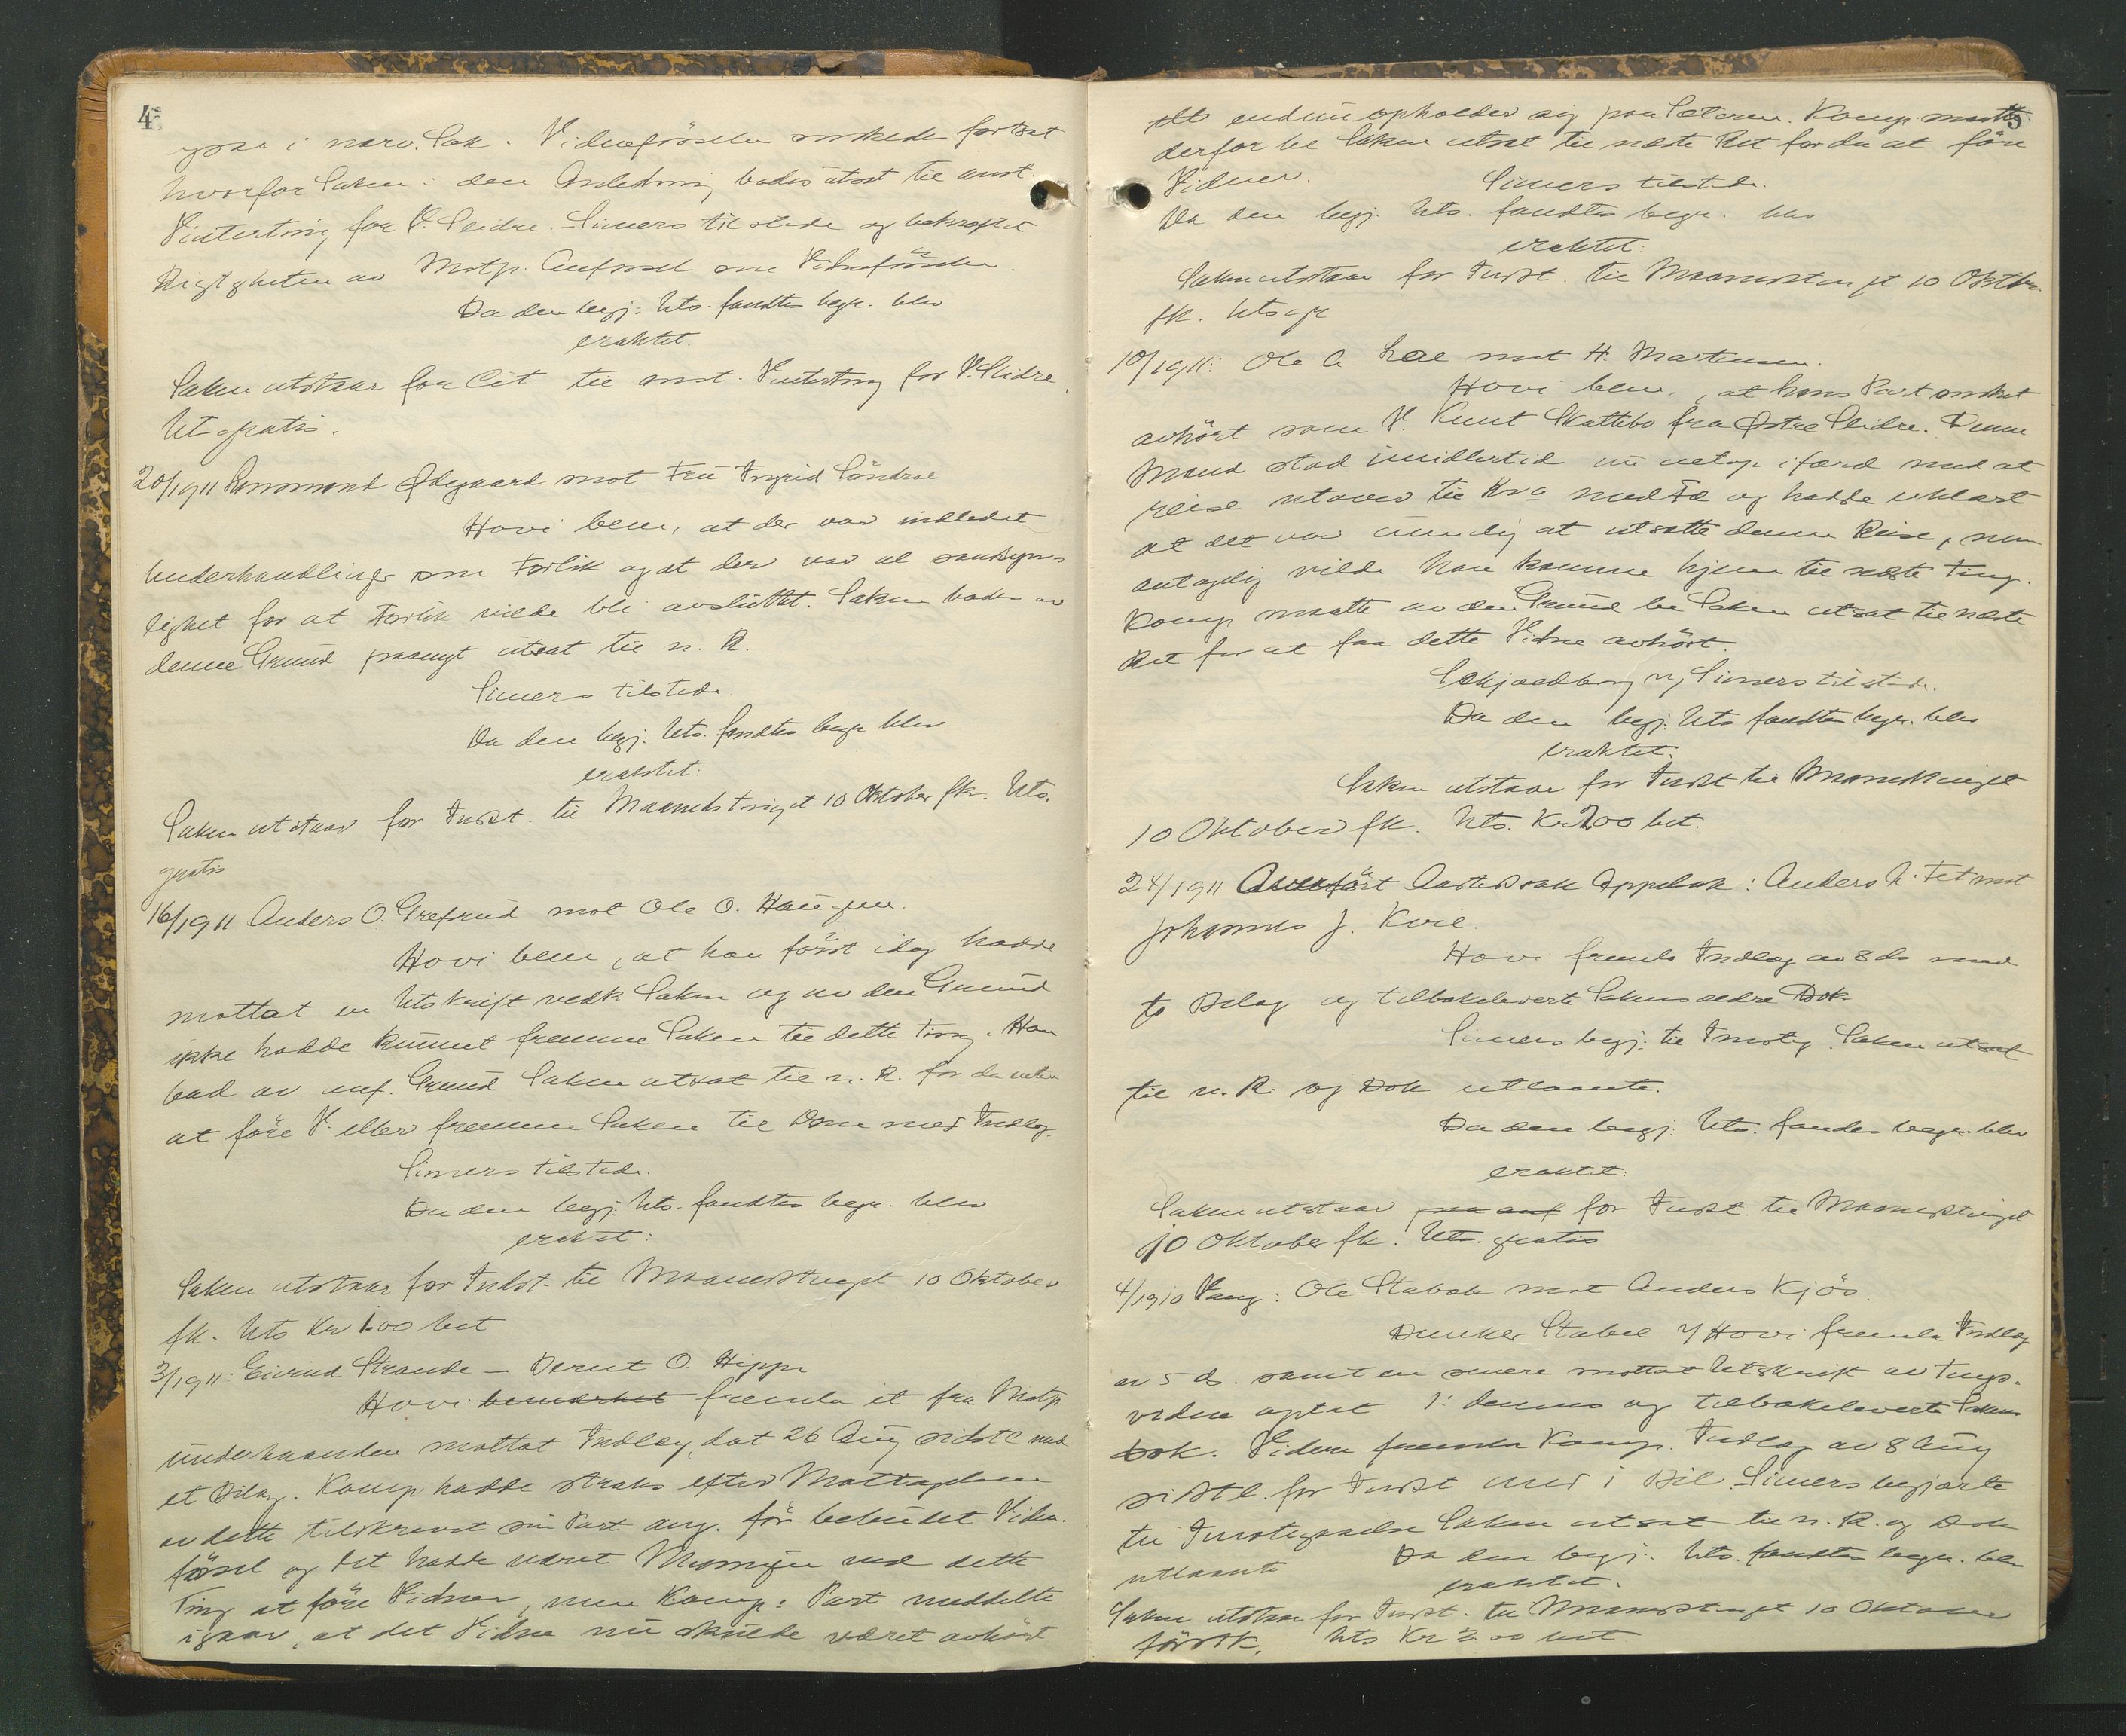 4
ogsaa i nærv. Sak. Vidneførselen ønskedes fortsat
hvorfor Saken i den Anledning bades utsat til anst.
Vinterting for V. Slidre. Simers tilstede og bekræftet
Rigtigheten av Motp. Anførsel om Vidneførselen.
Da den begj. Uts. fandtes begr. blev
eraktet.
Saken utstaar for Cit. til anst. Vinterting for V. Slidre.
Ut gratis.
20/1911 Ødegaard mot Fru Ingrid Söndrol
Hovi bem, at der var indledet
Underhandlinger om Forlik og at der var al sandsyn-
lighet for at Forlik vilde bli avsluttet. Saken bades av
denne Grund paanyt utsat til n. R.
Simers tilstede.
Da den begj. Uts. fandtes begr blev
eraktet:
Saken utstaar for Indst. til Maanedstinget 10 Oktober fk. Uts.
gratis
16/1911 Anders O. Grefsrud mot Ole O. Haugen.
Hovi bem, at han först idag hadde
mottat en Utskrift vedk. Saken og av den Grund
ikke hadde kunnet fremme Saken til dette Ting. Han
bad av anf. Grund Saken utsat til n. R. for da enten
at före V. eller fremme Saken til Dom med Indlæg.
Simers tilstede.
Da den begj. Uts. fandtes begr. blev
eraktet:
Saken utstaar for Indst. til Maanedstinget 10 Oktober
fk. Uts Kr 1.00 bet
3/1911: Eivind Strande – Bernt O. Hippe
Hovi bemærket fremla et fra Motp
underhaanden mottat Indlæg, dat 26 Aug sidstl med
et Bilag. Komp hadde straks efter Mottagelsen
av dette tilskrevet sin Part ang. før bebudet Vidne-
førsel og det hadde været Meningen ved dette
Ting at føre Vidner, men Komp: Part meddelte
igaar, at det Vidne nu skulde været avhørt
5
endnu opholder sig paa Sæteren. Komp. maatte
derfor be Saken utsat til næste Ret for da at føre
Vidner. Simers tilstede.
Da den begj. Uts. fandtes begr. blev
eraktet:
Saken utstaar for Indst. til Maanedstinget 10 Oktober
fk. Uts gr
10/1911: Ole O. mot H. Martinsen.
Hovi bem., at hans Part ønsket
avhört som V. Knut Skattebo fra Østre Slidre. Denne
Mand stod imidlertid nu netop ifærd med at
reise utover til Kra med Fæ og hadde erklært
at det var umulig at utsætte denne Reise, men
antagelig vilde han komme hjem til næste Ting.
Komp maatte av den Grund be Saken utsat til næste
Ret for at faa dette Vidne avhört.
Skjoldborg v/ Simers tilstede.
Da den begj. Uts fandtes begr. blev
eraktet.
Saken utstaar for Indst til Maanedstinget
10 Oktober fk. Uts. Kr 2.00 bet.
24/1911 Aastedssak : Anders A. Fet mot
Johannes J. Kvie.
Hovi fremla Indlæg av 8 ds med
to Bilag og tilbakeleverte Sakens ældre Dok
Simers begj. til Imøteg. Saken utsat
til n. R. og Dok utlaante.
Da den begj. Uts. fandtes begr. blev
eraktet:
Saken utstaar for Indst. til Maanedstinget
10 Oktober fk. Uts. gratis
4/1910 Vang: Ole Stabak mot Anders Kjös.
Dunker Stabel v/ Hovi fremla Indlæg
av 5 ds. samt en senere mottat Utskrift av Tings-
vidne optat 1' dennes og tilbakeleverte Sakens
Dok. Videre fremla Komp. Indlæg av 8 Aug
sidstl. for Indst med 1 Bil. Simers begjærte
til Imøtegaaelse Saken utsat til n. R. og Dok
utlaante Da den begj. Uts. fandtes begr. blev
eraktet.
Saken utstaar for Indst. til Maanedstinget 10 Oktober
förstk. Uts Kr 2.00 bet